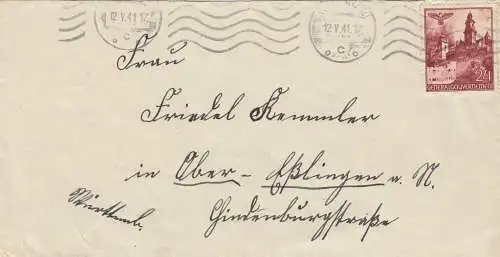 12.V.41.12
c
12.V.41.12
c
24
GENERALGOUVERNEMENT
Frau
Friedel Kemmler
in Ober-Eßlingen a. N.
Württemb.
Hindenburgstraße